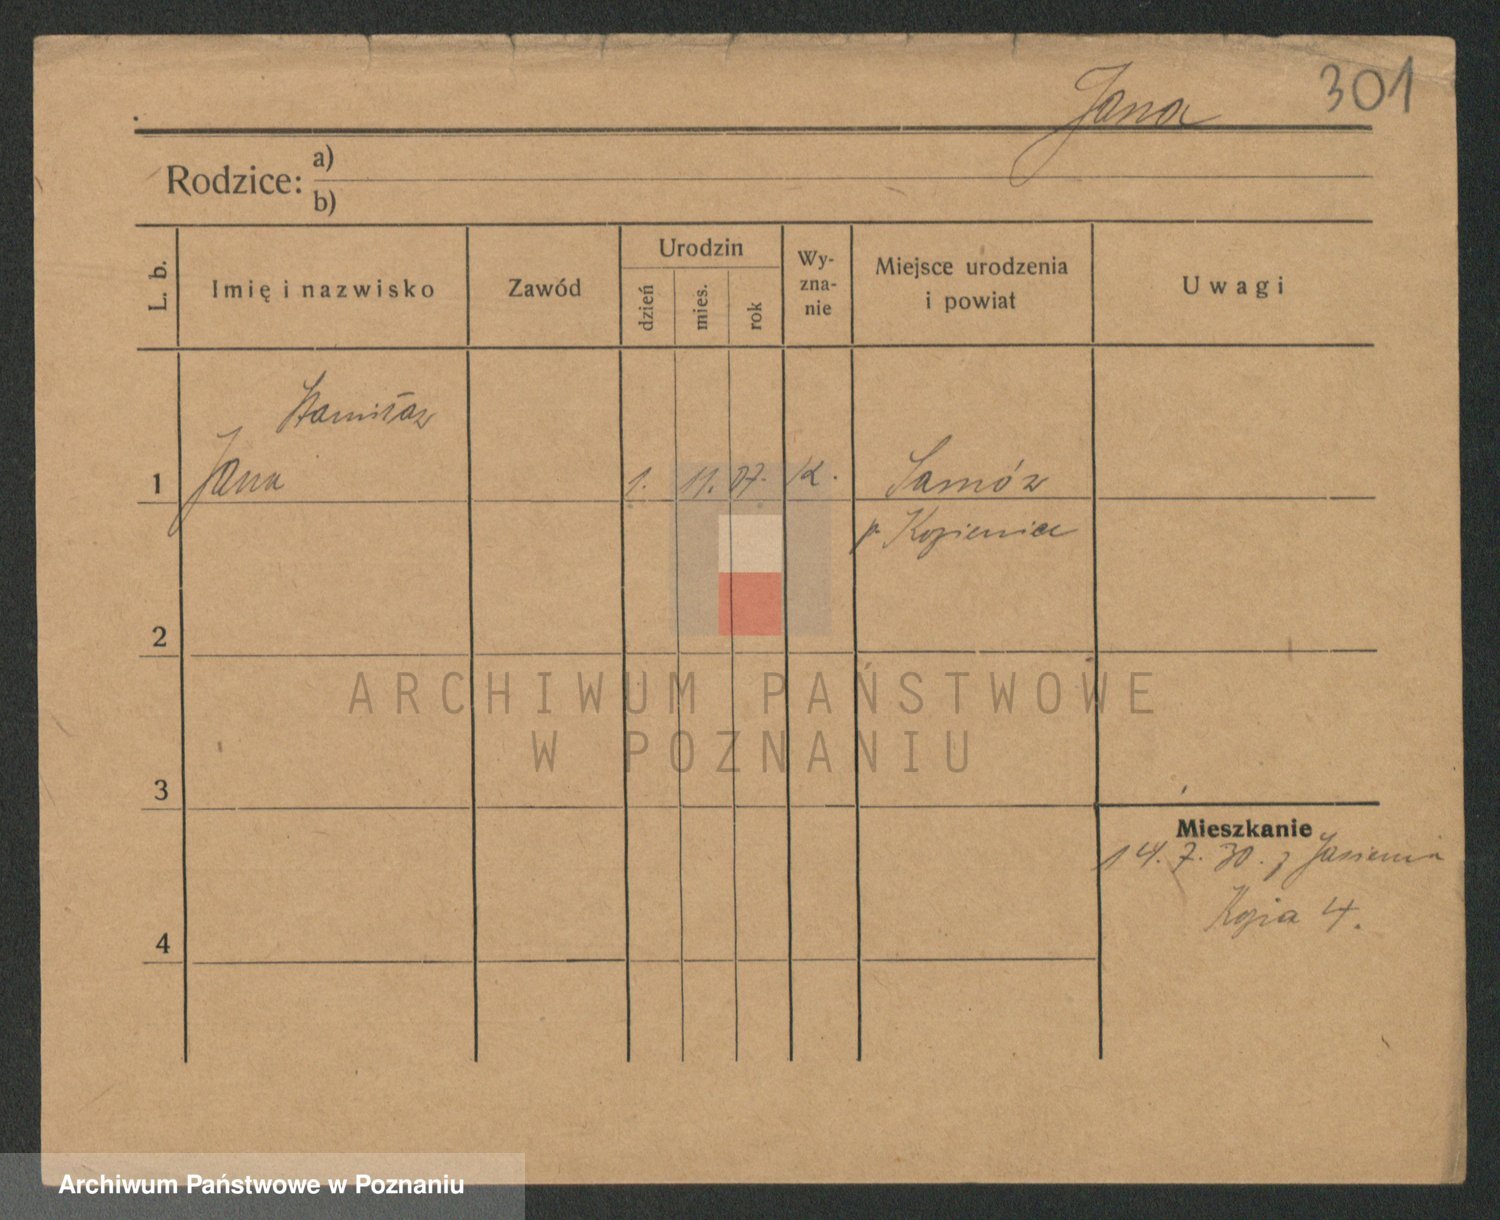 Jana 301
Rodzice: a)
b)
L. b. Imię i nazwisko Zawód Urodzin dzień mies. rok Wy-zna-nie Miejsce urodzenia i powiat Uwagi
Stanisław
1 Jana 1. 11. 07. k. Samóz
p Kozienice
2
ARCHIWUM PAŃSTWOWE
W POZNANIU
3
Mieszkanie
14. 7. 30. z Jasienia
Kozia 4.
4
Archiwum Państwowe w Poznaniu